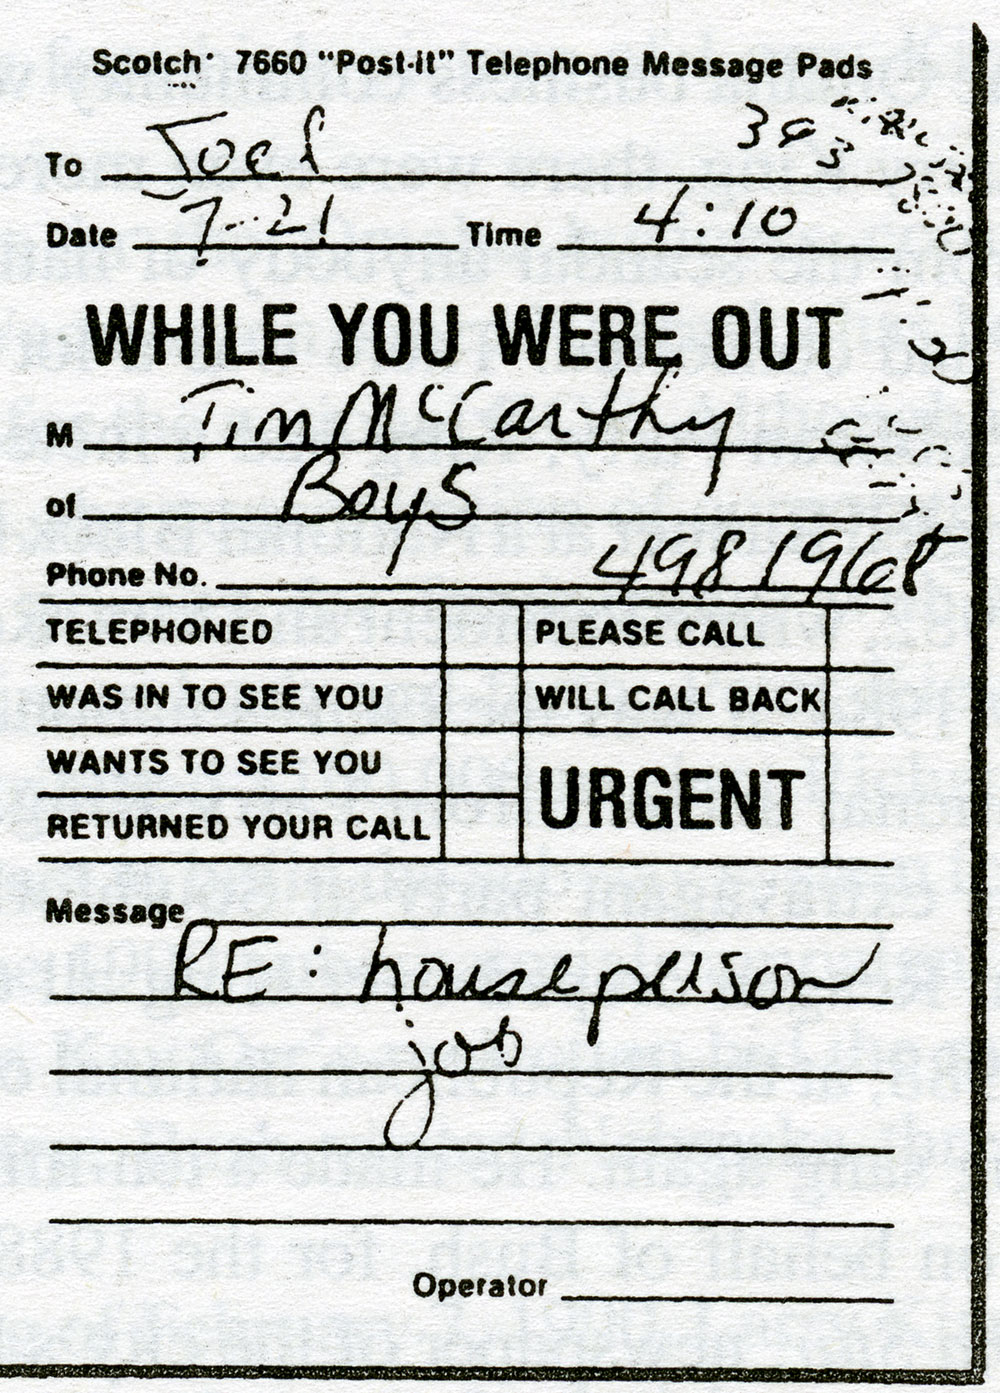 Scotch 7660 "Post-it" Telephone Message Pads
To Joel 393
Date 7-21 Time 4:10
WHILE YOU WERE OUT
M Tim McCarthy
of Boys
Phone No. 498 1968
TELEPHONED PLEASE CALL
WAS IN TO SEE YOU WILL CALL BACK
WANTS TO SEE YOU URGENT
RETURNED YOUR CALL
Message
RE: houseperson
job
Operator